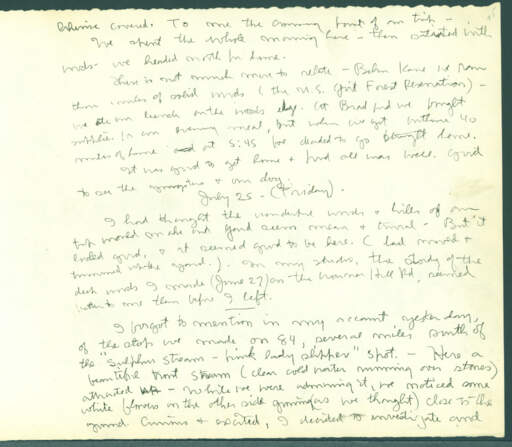 covered. To me the crowning point of our trip -
We spent the whole morning here - then started with
we headed north for home.
There is not much more to relate - Below Kane we ran
thru miles of solid woods (the U.S. Govt Forest Reservation) -
we ate our lunch on the woods edge. At Bradford we bought
supplies for our evening meal, but when we got within 40
miles of home at 5:45 we decided to go home.
It was good to get home & find all was well. Good
to see the & our dog.
July 25 - (Tuesday).
I had thought the wonderful woods & hills of our
trip would make our yard seem mean & trivial - But it
looked good, & it seemed good to be here. (I had mowed &
trimmed up the yard.). In my studio, the study of the
dark woods I made (June 27) on the Hill Rd, seemed
better to me than before I left.
I forgot to mention in my account yesterday,
of the stop we made on 84, several miles south of
the "sulphur stream - pink lady slipper" spot. - Here a
beautiful trout stream (clear cold water running over stones)
attracted us - While we were admiring it, we noticed some
white flowers on the other side growing (as we thought) close to the
ground. Curious & excited, I decided to investigate and